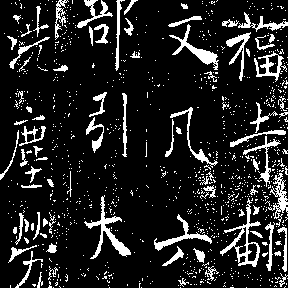 福寺翻
文凡六
部引大
洗塵勞